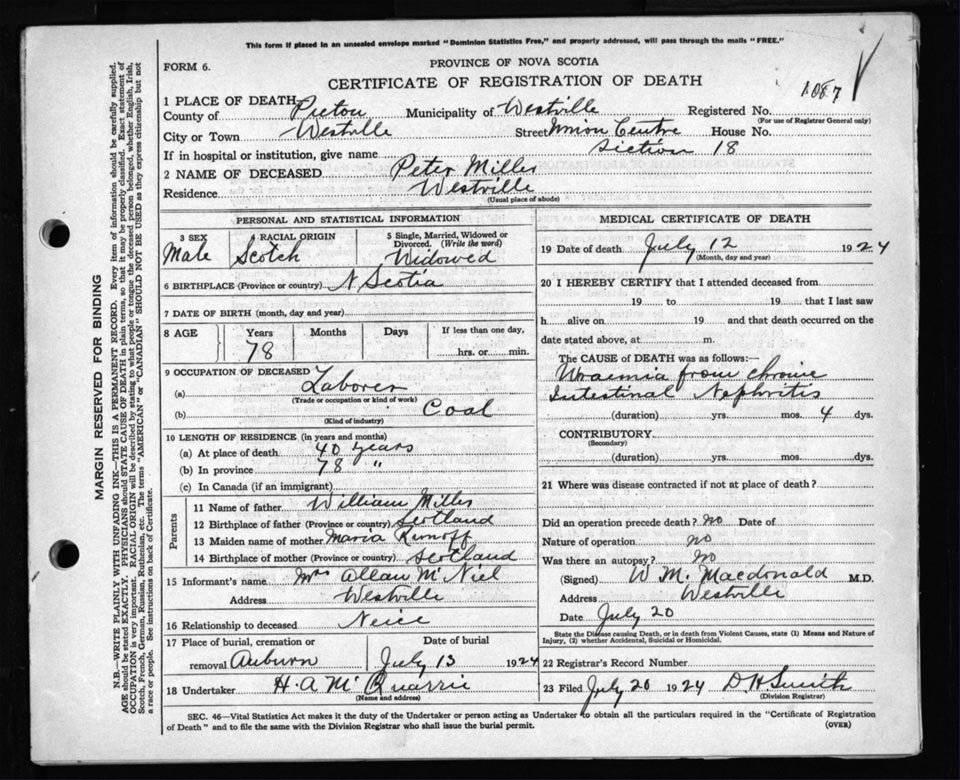 This form if placed in an unsealed envelope marked "Dominion Statistics Free," and properly addressed, will pass through the mails "FREE."
FORM 6.
PROVINCE OF NOVA SCOTIA
CERTIFICATE OF REGISTRATION OF DEATH
1087
1 PLACE OF DEATH
County of Pictou Municipality of Westville Registered No.
(For use of Registrar General only)
City or Town Westville Street Union Centre House No.
Section 18
If in hospital or institution, give name
2 NAME OF DECEASED Peter Miller
Residence Westville
(Usual place of abode)
PERSONAL AND STATISTICAL INFORMATION
3 SEX 4 RACIAL ORIGIN 5 Single, Married, Widowed or Divorced. (Write the word)
Male Scotch Widowed
6 BIRTHPLACE (Province or country) N Scotia
7 DATE OF BIRTH (month, day and year)
8 AGE Years Months Days If less than one day,
78 hrs. or min.
9 OCCUPATION OF DECEASED
(a) Laborer
(Trade or occupation or kind of work)
(b) Coal
(Kind of industry)
10 LENGTH OF RESIDENCE (in years and months)
(a) At place of death 40 years
(b) In province 78 "
(c) In Canada (if an immigrant)
Parents
11 Name of father William Miller
12 Birthplace of father (Province or country) Scotland
13 Maiden name of mother Maria
14 Birthplace of mother (Province or country) Scotland
15 Informant's name Mrs Allan McNiel
Address Westville
16 Relationship to deceased Neice
17 Place of burial, cremation or removal Auburn
Date of burial July 13 1924
18 Undertaker H. A McQuarrie
(Name and address)
MEDICAL CERTIFICATE OF DEATH
19 Date of death July 12 1924
(Month, day and year)
20 I HEREBY CERTIFY that I attended deceased from
19 to 19 that I last saw
h alive on 19 and that death occurred on the
date stated above, at m.
The CAUSE OF DEATH was as follows:—
Uraemia from chronic
Intestinal Nephritis
(duration) yrs. mos. 4 dys.
CONTRIBUTORY
(Secondary)
(duration) yrs. mos. dys.
21 Where was disease contracted if not at place of death?
Did an operation precede death? No Date of
Nature of operation no
Was there an autopsy? No
(Signed) W M. Macdonald M.D.
Address Westville
Date July 20
State the Disease causing Death, or in death from Violent Causes, state (1) Means and Nature of
Injury, (2) whether Accidental, Suicidal or Homicidal.
22 Registrar's Record Number
23 Filed July 20 1924 D H Smith
(Division Registrar)
SEC. 46—Vital Statistics Act makes it the duty of the Undertaker or person acting as Undertaker to obtain all the particulars required in the "Certificate of Registration
of Death" and to file the same with the Division Registrar who shall issue the burial permit. (OVER)
MARGIN RESERVED FOR BINDING
N.B.—WRITE PLAINLY WITH UNFADING INK—THIS IS A PERMANENT RECORD. Every item of information should be carefully supplied.
AGE should be stated EXACTLY. PHYSICIANS should STATE CAUSE OF DEATH in plain terms, so that it may be properly classified. Exact statement of
OCCUPATION is very important. RACIAL ORIGIN will be described by stating to what people or tongue the deceased person belonged, whether English, Irish,
Scotch, French, German, Russian, Ruthenian, etc. The terms "AMERICAN" or "CANADIAN" SHOULD NOT BE USED as they express citizenship but not
a race or people. See instructions on back of Certificate.